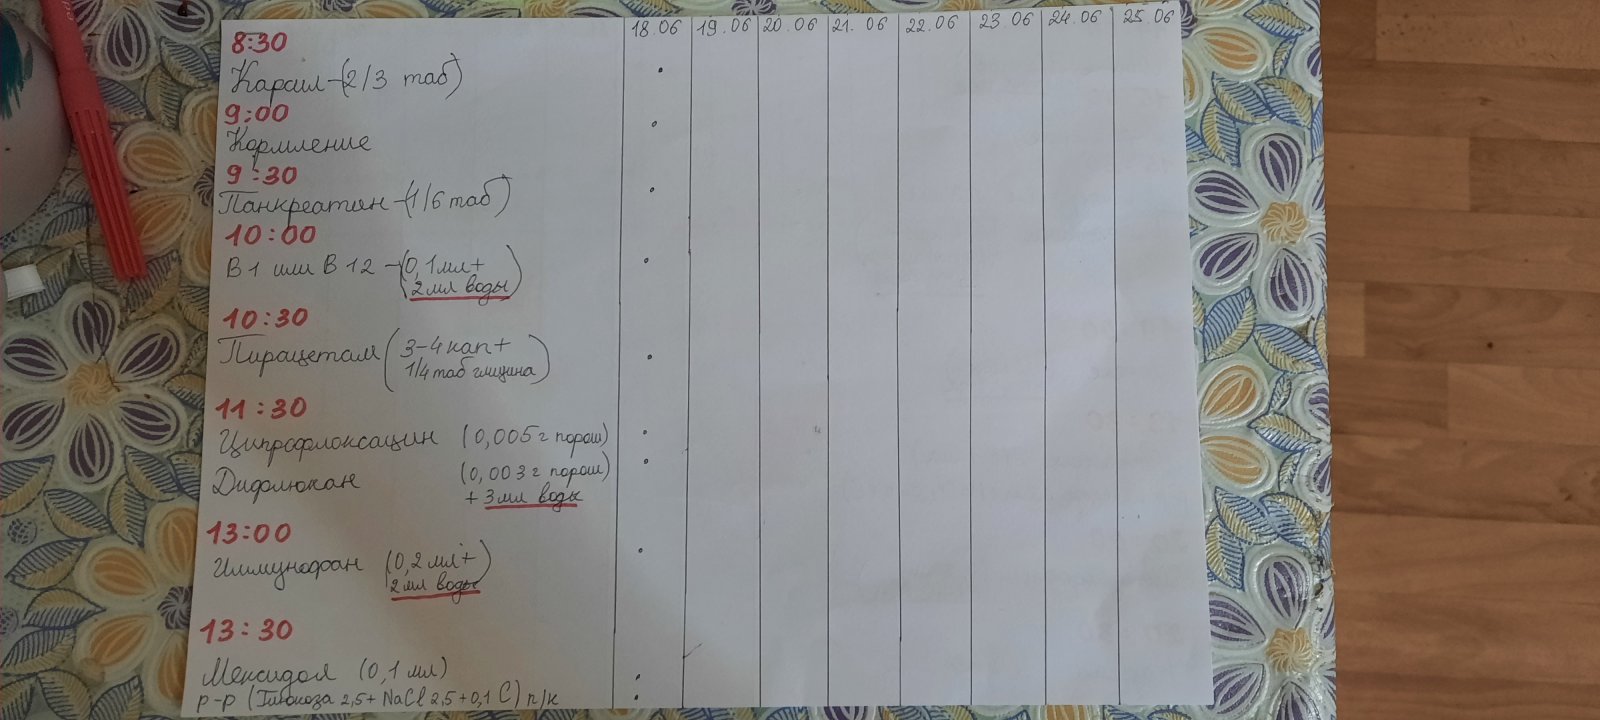 18.06 19.06 20.06 21.06 22.06 23.06 24.06 25.06
8:30
Карсил-(2/3 таб)
9:00
Кормление
9:30
Панкреатин-(1/6 таб)
10:00
В1 или В12-(0,1мл+
2мл воды)
10:30
Пирацетам (3-4 кап+
1/4 таб глицина)
11:30
Ципрофлоксацин (0,005г порош)
Дифлюкан (0,003г порош)
+ 3мл воды
13:00
Иммунофан (0,2мл+
2мл воды)
13:30
Мексидол (0,1мл)
р-р (Глюкоза 2,5+ NaCl 2,5+0,1 С) п/к